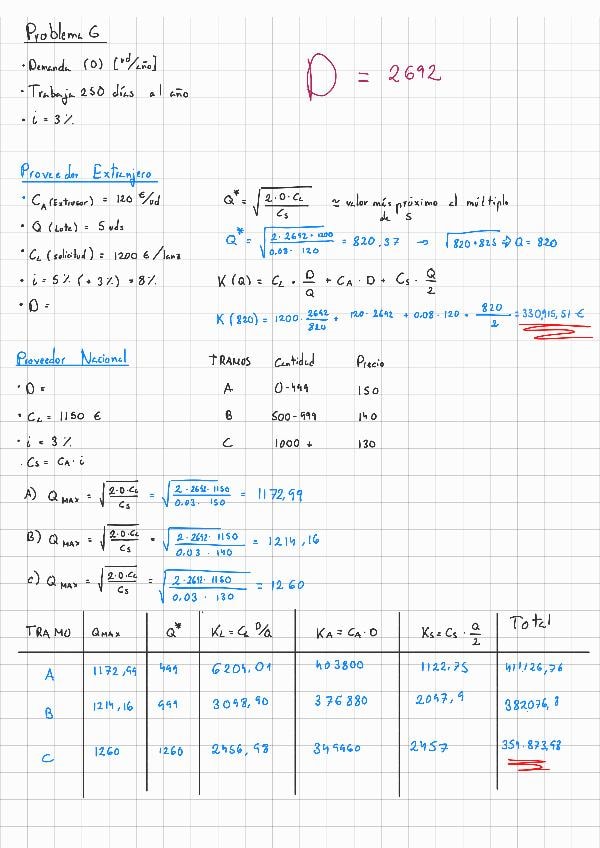 Problema 6
· Demanda (D) [ud/año]
· Trabaja 250 días al año
· i = 3%
D = 2692
Proveedor Extranjero
· CA (Extrusor) = 120 €/ud
· Q (Lote) = 5 uds
· CL (solicitud) = 1200 €/lanz
· i = 5% (+ 3%) = 8%
· D =
Q* = √(2·D·CL / CS) ≃ valor más próximo al múltiplo de 5
Q* = √(2·2692·1200 / 0.08·120) = 820,37 → √820·825 ⇒ Q = 820
K(Q) = CL · D/Q + CA · D + CS · Q/2
K(820) = 1200· 2692/820 + 120·2692 + 0.08·120· 820/2 = 330,915,51 €
Proveedor Nacional
· D =
· CL = 1150 €
· i = 3%
· CS = CA · i
TRAMOS Cantidad Precio
A 0-499 150
B 500-999 140
C 1000 + 130
A) QMAX = √(2·D·CL / CS) = √(2·2692·1150 / 0.03·150) = 1172,99
B) QMAX = √(2·D·CL / CS) = √(2·2692·1150 / 0.03·140) = 1214,16
C) QMAX = √(2·D·CL / CS) = √(2·2692·1150 / 0.03·130) = 1260
TRAMO QMAX Q* KL = CL D/Q KA = CA·D KS = CS · Q/2 Total
A 1172,99 499 6204,01 403800 1122,75 411,126,76
B 1214,16 999 3098,90 376880 2097,9 382076,8
C 1260 1260 2456,98 349960 2457 354.873,98